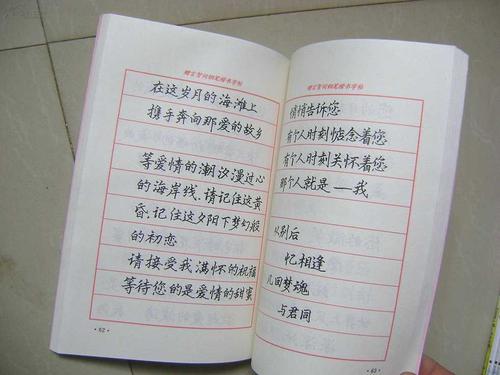 赠言贺词钢笔楷书字帖
在这岁月的海滩上
携手奔向那爱的故乡
等爱情的潮汐漫过心
的海岸线，请记住这黄
昏，记住这夕阳下梦幻般
的初恋
请接受我满怀的祝福
等待您的是爱情的甜蜜
·62·
赠言贺词钢笔楷书字帖
悄悄告诉您
有个人时刻惦念着您
有个人时刻关怀着您
那个人就是——我
从别后
忆相逢
几回梦魂
与君同
·63·